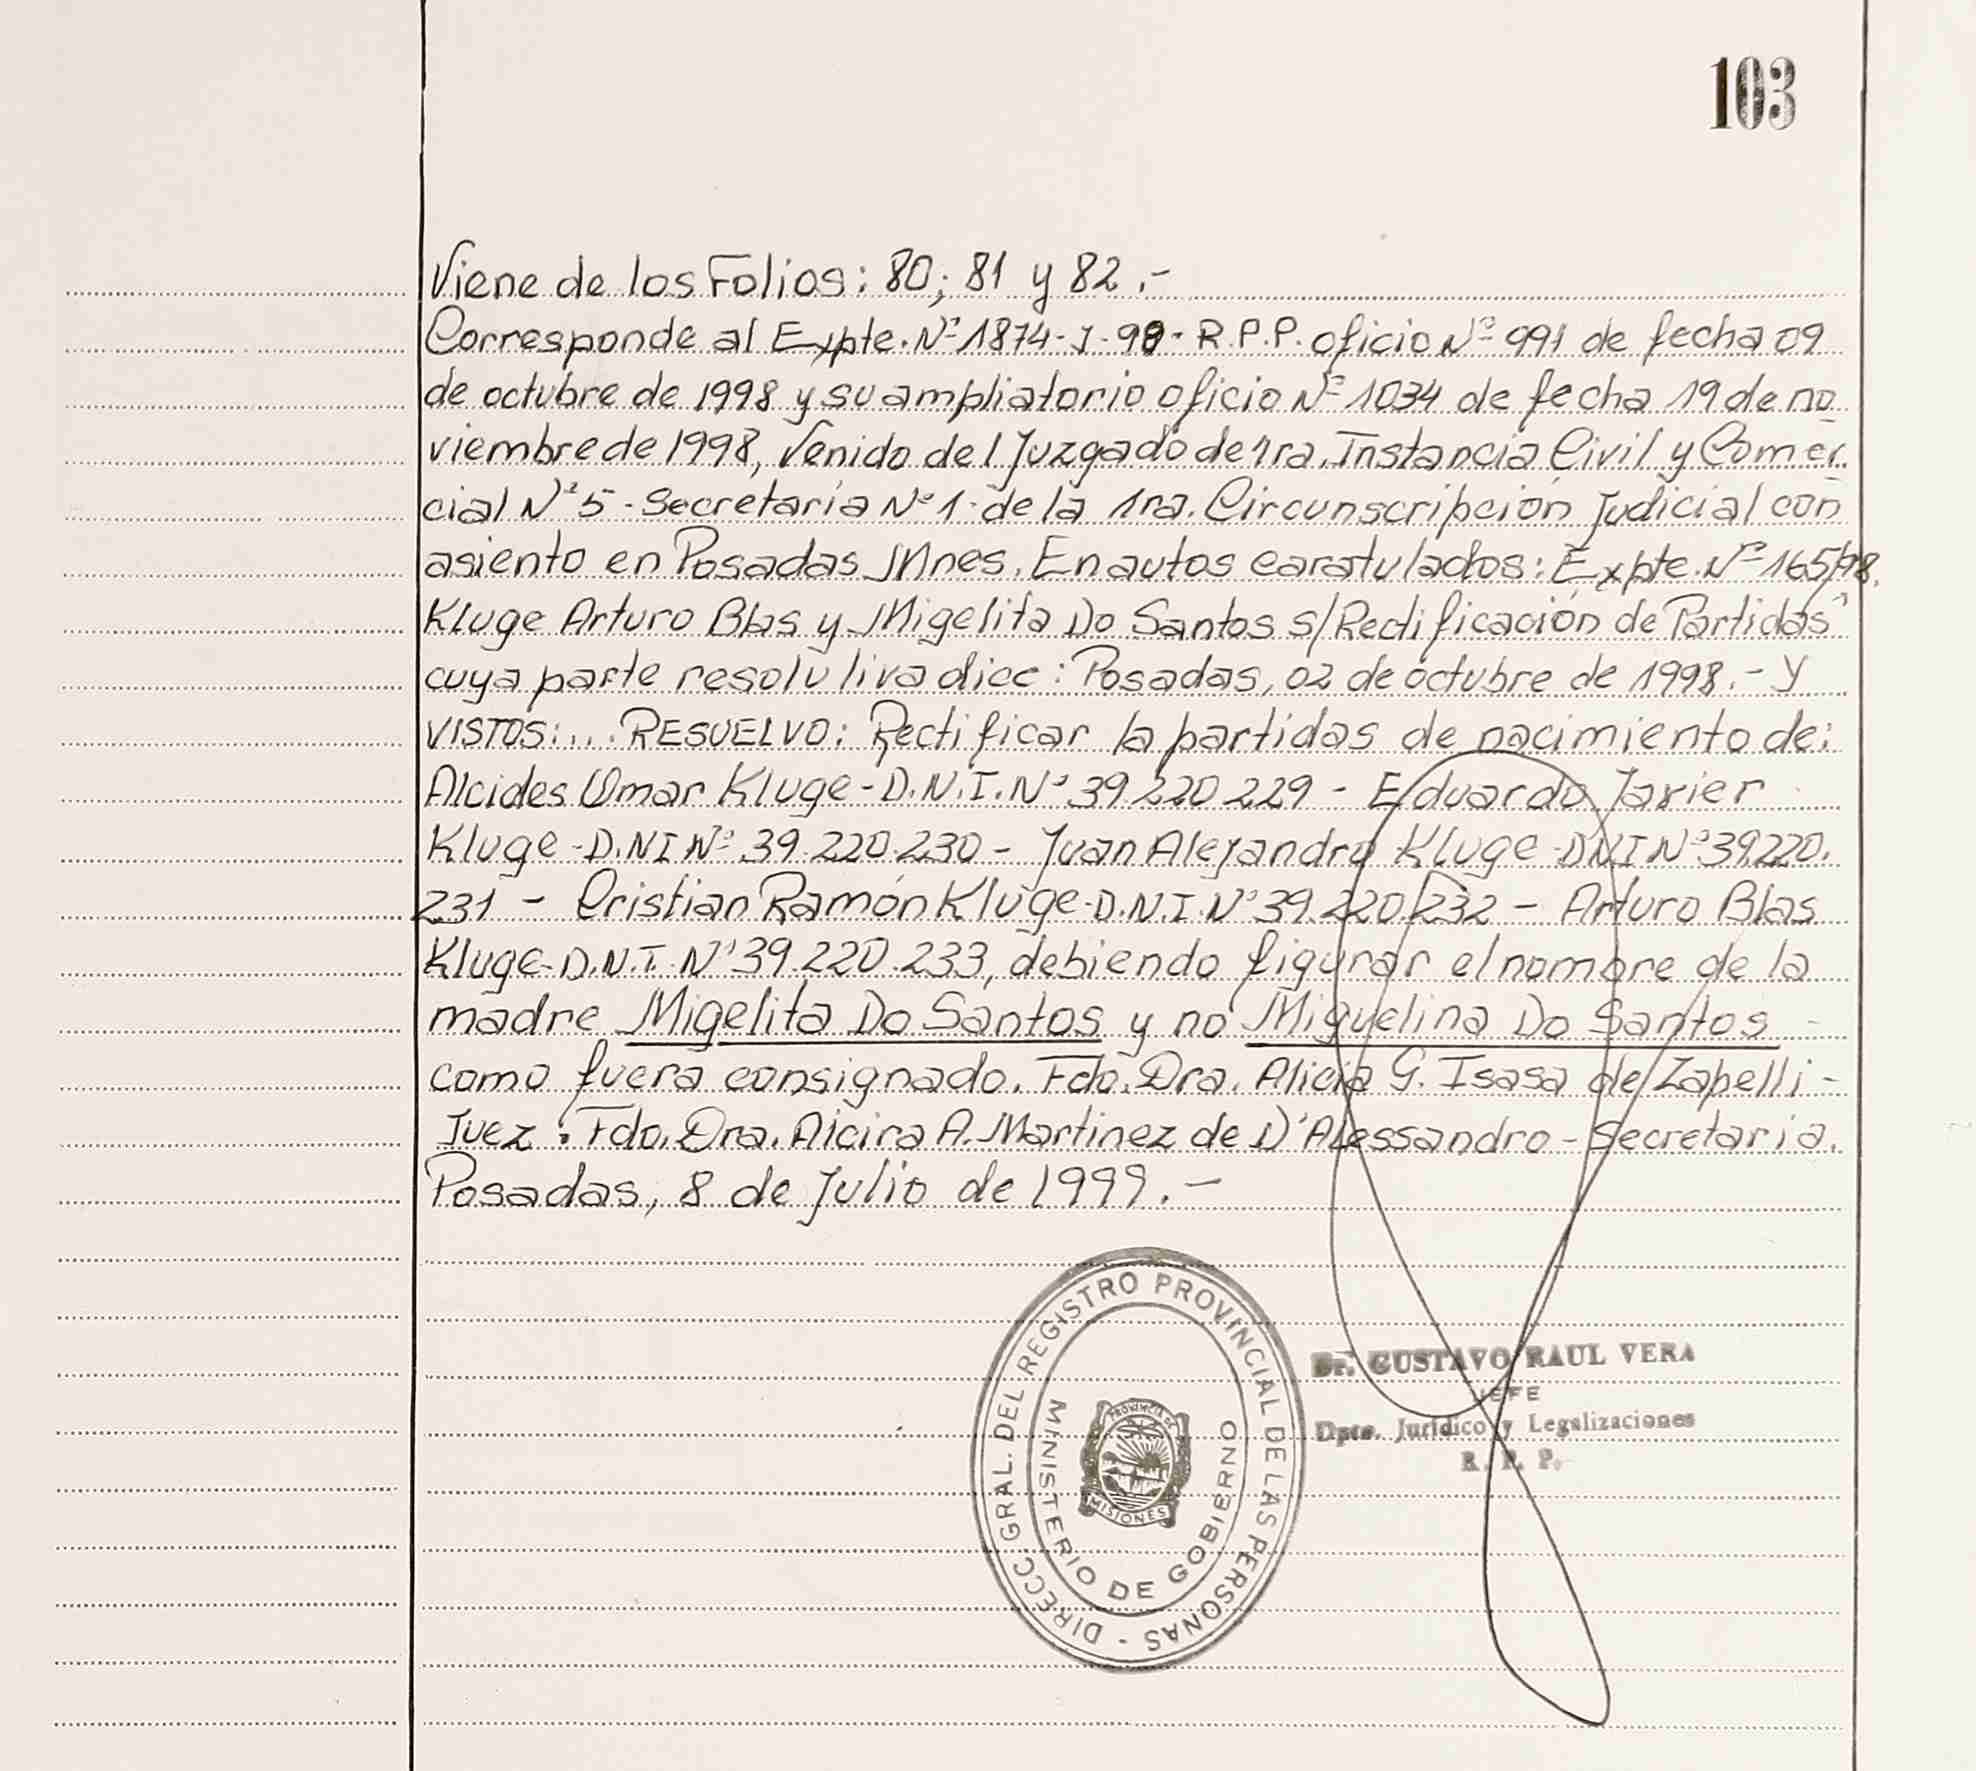 103
Viene de los Folios: 80; 81 y 82.-
Corresponde al Expte. Nº 1874-J-98- R.P.P. oficio Nº 991 de fecha 09
de octubre de 1998 y su ampliatorio oficio Nº 1034 de fecha 19 de no
viembre de 1998, Venido del Juzgado de 1ra. Instancia Civil y Comer
cial Nº 5 - Secretaría Nº 1 - de la 1ra. Circunscripción Judicial con
asiento en Posadas Mnes. En autos caratulados: Expte. Nº 165/98.
Kluge Arturo Blas y Migelita Do Santos s/Rectificación de Partidas"
cuya parte resolutiva dice: Posadas, 02 de octubre de 1998.- Y
VISTOS:... RESUELVO: Rectificar la partidas de nacimiento de:
Alcides Omar Kluge - D.N.I. Nº 39 220 229 - Eduardo Javier
Kluge - D.NI Nº 39.220.230 - Juan Alejandro Kluge - DNI Nº 39220.
231 - Cristian Ramón Kluge - D.N.I. Nº 39.220.232 - Arturo Blas
Kluge - D.N.I. Nº 39.220.233, debiendo figurar el nombre de la
madre Migelita Do Santos y no Miguelina Do Santos -
como fuera consignado. Fdo. Dra. Alicia G. Isasa de Zapelli -
Juez. Fdo. Dra. Alcira A. Martinez de D'Alessandro - Secretaria.
Posadas, 8 de Julio de 1999.-
DIRECC. GRAL. DEL REGISTRO PROVINCIAL DE LAS PERSONAS -
MINISTERIO DE GOBIERNO
PROVINCIA DE
MISIONES
Dr. GUSTAVO RAUL VERA
JEFE
Dpto. Jurídico y Legalizaciones
R. P. P.